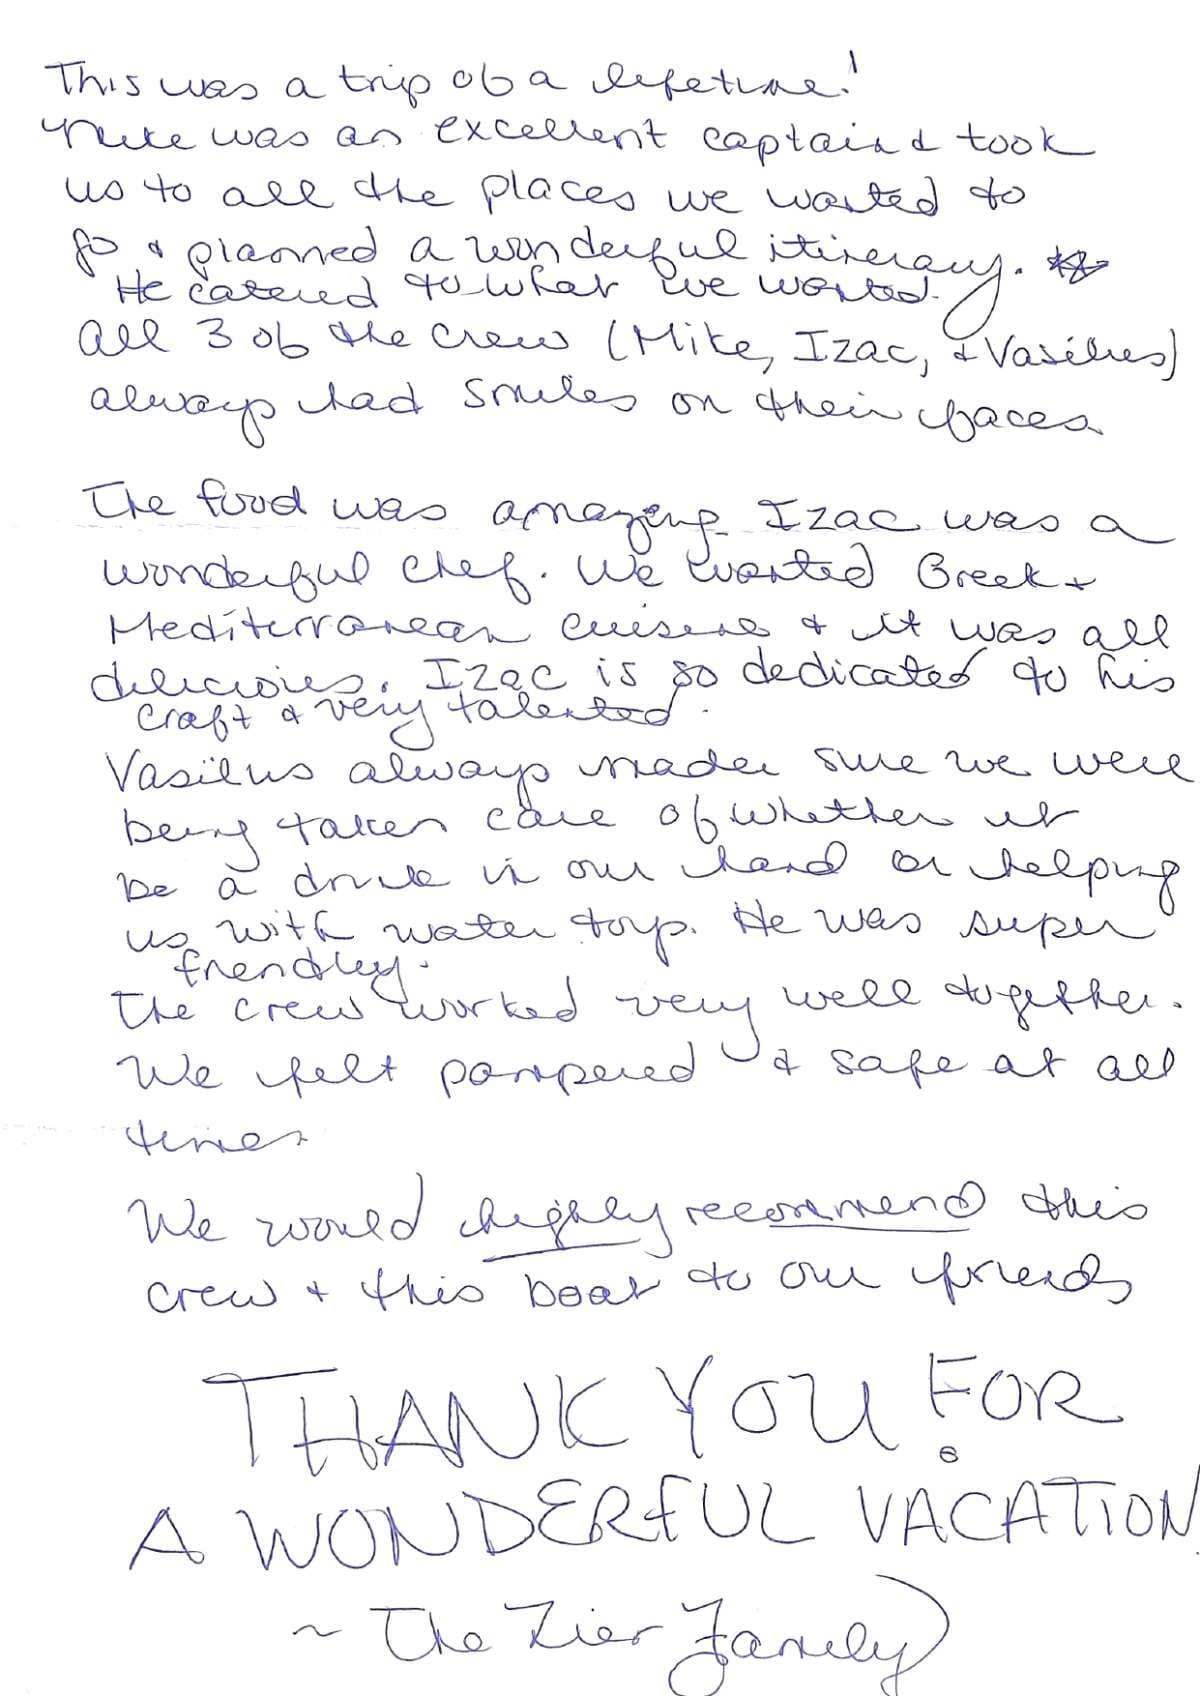 This was a trip of a lifetime!
Mike was an excellent captain & took
us to all the places we wanted to
go & planned a wonderful itinerary.
He catered to what we wanted.
All 3 of the crew (Mike, Izac, & Vasilius)
always had smiles on their faces.
The food was amazing. Izac was a
wonderful chef. We wanted Greek &
Mediterranean cuisine & it was all
delicious. Izac is so dedicated to his
craft & very talented.
Vasilus always made sure we were
being taken care of whether it
be a drink in our hand or helping
us with water toys. He was super
friendly.
The crew worked very well together.
We felt pampered & safe at all
times
We would highly recommend this
crew & this boat to our friends
THANK YOU FOR
A WONDERFUL VACATION
~ The Zier Family